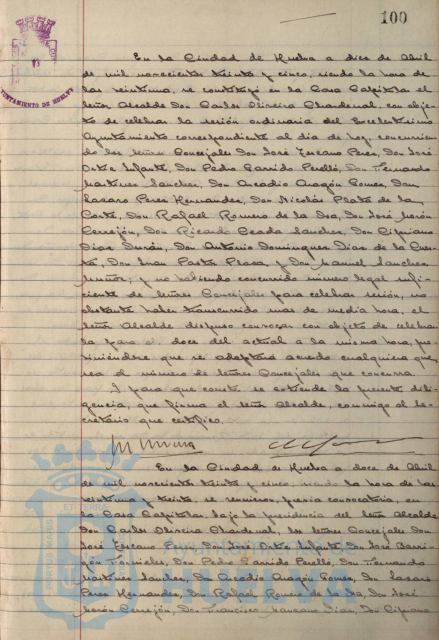 100
AYUNTAMIENTO DE HUELVA
En la Ciudad de Huelva a diez de Abril
de mil novecientos treinta y cinco, siendo la hora de
las veintiuna, se constituyó en la Casa Capitular el
señor Alcalde Don Carlos Oliveira Chardenal, con obje-
to de celebrar la sesión ordinaria del Excelentísimo
Ayuntamiento correspondiente al día de hoy, concurrien-
do los señores Concejales Don José Ezcano Perez, Don José
Ortiz Infante, Don Pedro Garrido Perelló, Don Fernando
Martinez Sanchez, Don Arcadio Aragón Gomez, Don
Lazaro Perez Hernandez, Don Nicolás Plata de la
Corte, Don Rafael Romero de la Isa, Don José Morón
Cerrejón, Don Ricardo Ceada Sanchez, Don Cipriano
Diaz Durán, Don Antonio Dominguez Diaz de la Cues-
ta, Don Juan Pastor Plaza, y Don Manuel Sanchez
Muñoz; y no habiendo concurrido número legal sufi-
ciente de señores Concejales para celebrar sesión, no
obstante haber transcurrido mas de media hora, el
señor Alcalde dispuso convocar con objeto de celebrar-
la para el doce del actual a la misma hora, pre-
viniéndose que se adoptará acuerdo cualquiera que
sea el número de señores Concejales que concurra.
Y para que conste se extiende la presente dili-
gencia, que firma el señor Alcalde, conmigo el Se-
cretario que certifico.
En la Ciudad de Huelva a doce de Abril
de mil novecientos treinta y cinco, siendo la hora de las
veintiuna y treinta, se reunieron, previa convocatoria, en
la Casa Capitular, bajo la presidencia del señor Alcalde
Don Carlos Oliveira Chardenal, los señores Concejales Don
José Ezcano Perez, Don José Ortiz Infante, Don José Barri-
gón Fornieles, Don Pedro Garrido Perelló, Don Fernando
Martinez Sanchez, Don Arcadio Aragón Gomez, Don Lazaro
Perez Hernandez, Don Rafael Romero de la Isa, Don José
Morón Cerrejón, Don Francisco Manzano Diaz, Don Cipriano